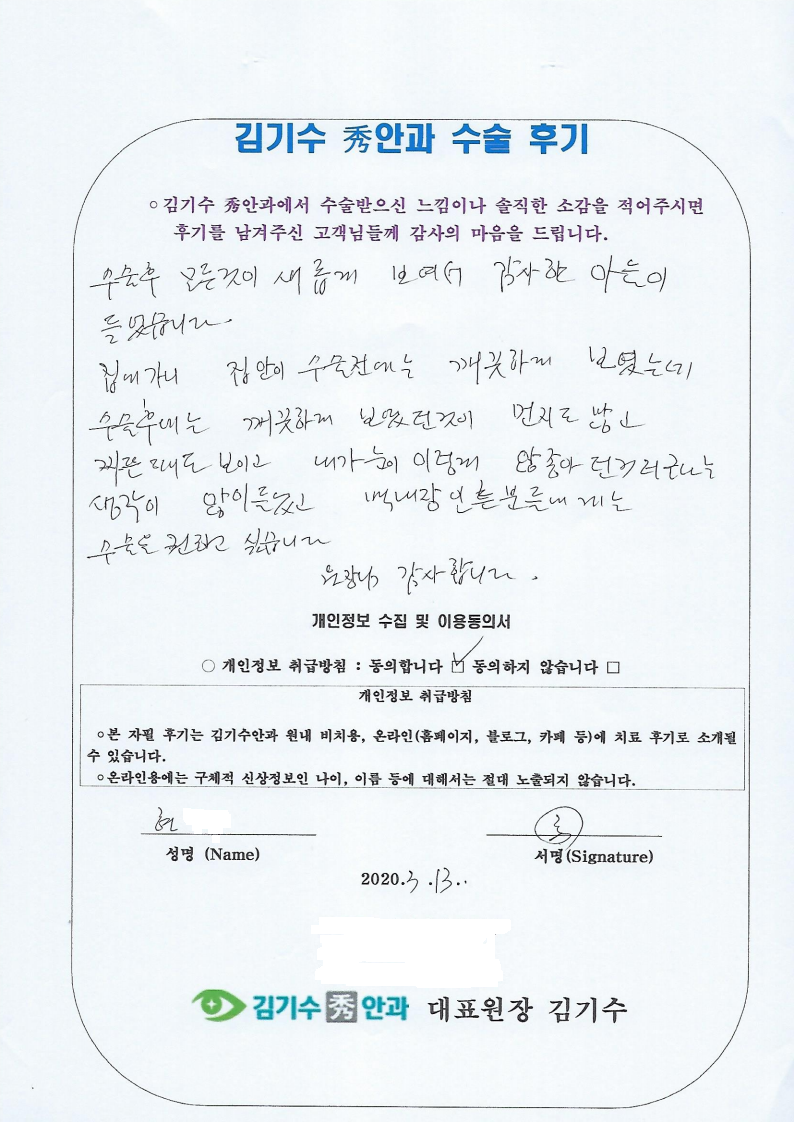 김기수 秀안과 수술 후기
○김기수 秀안과에서 수술받으신 느낌이나 솔직한 소감을 적어주시면
후기를 남겨주신 고객님들께 감사의 마음을 드립니다.
수술후 모든것이 새롭게 보여서 감사한 마음이
들었습니다.
집에가니 집안이 수술전에는 깨끗하게 보였는데
수술후에는 깨끗하게 보였던것이 먼지도 많고
찌든때도 보이고 내가눈이 이렇게 않좋아
생각이 많이들었고 백내장 분들에게는
수술을 권하고 싶습니다
원장님 감사합니다.
개인정보 수집 및 이용동의서
○ 개인정보 취급방침 : 동의합니다 ☑ 동의하지 않습니다 □
개인정보 취급방침
○본 자필 후기는 김기수안과 원내 비치용, 온라인(홈페이지, 블로그, 카페 등)에 치료 후기로 소개될
수 있습니다.
○온라인용에는 구체적 신상정보인 나이, 이름 등에 대해서는 절대 노출되지 않습니다.
현
성명 (Name)
서명(Signature)
2020.3.13..
김기수 秀 안과 대표원장 김기수